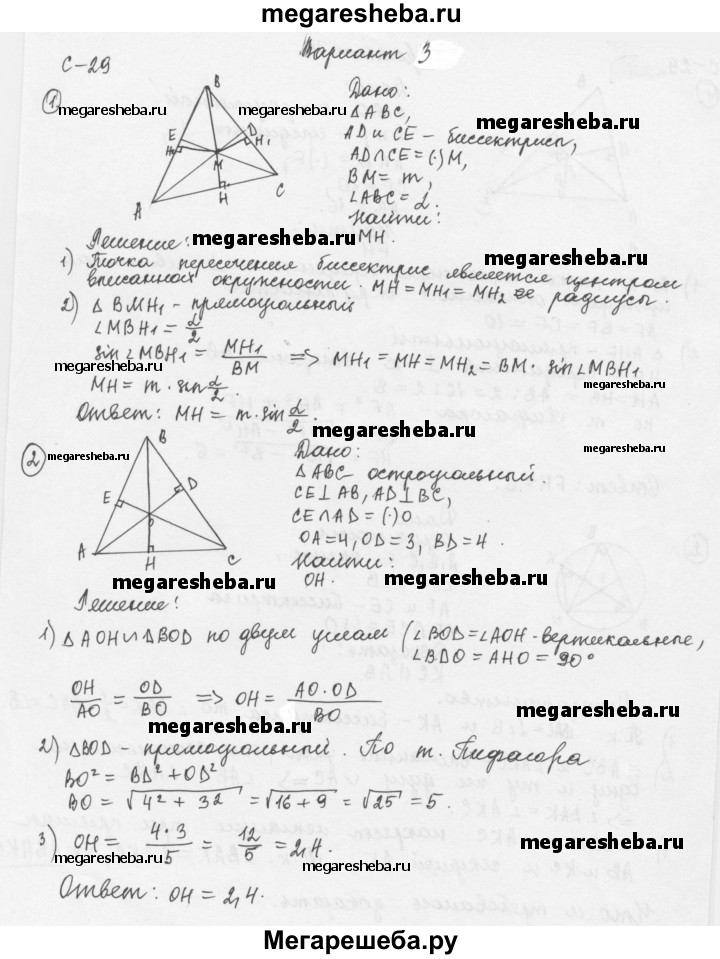 megaresheba.ru
С-29
Вариант 3
1
megaresheba.ru
B
E
H₂
D
H₁
M
A
H
C
Дано:
△ABC,
megaresheba.ru
AD и CE – биссектрисы,
AD∩CE = (·) M,
BM = m,
∠ABC = α.
Найти:
MH.
megaresheba.ru
Решение:
megaresheba.ru
1) Точка пересечения биссектрис является центром
вписанной окружности. MH = MH₁ = MH₂ радиусы.
2) △ BMH₁ – прямоугольный
∠MBH₁ = α/2
megaresheba.ru
sin∠MBH₁ = MH₁/BM => MH₁ = MH = MH₂ = BM · sin∠MBH₁
megaresheba.ru
MH = m · sin α/2
Ответ: MH = m · sin α/2.
megaresheba.ru
2
megaresheba.ru
B
E
D
O
A
H
C
Дано:
△ABC остроугольный.
CE⊥AB, AD⊥BC,
CE∩AD = (·) O
OA = 4, OD = 3, BD = 4.
Найти:
OH.
megaresheba.ru
megaresheba.ru
Решение:
1) △AOH∽△BOD по двум углам (∠BOD = ∠AOH - вертикальные,
∠BDO = AHO = 90°
OH/AO = OD/BO => OH = AO · OD/BO
megaresheba.ru
megaresheba.ru
2) △BOD – прямоугольный. По т. Пифагора
BO² = BD² + OD²
BO = √4² + 3² = √16 + 9 = √25 = 5.
3) OH = 4·3/5 = 12/5 = 2,4.
megaresheba.ru
megaresheba.ru
Ответ: OH = 2,4.
Мегарешеба.ру